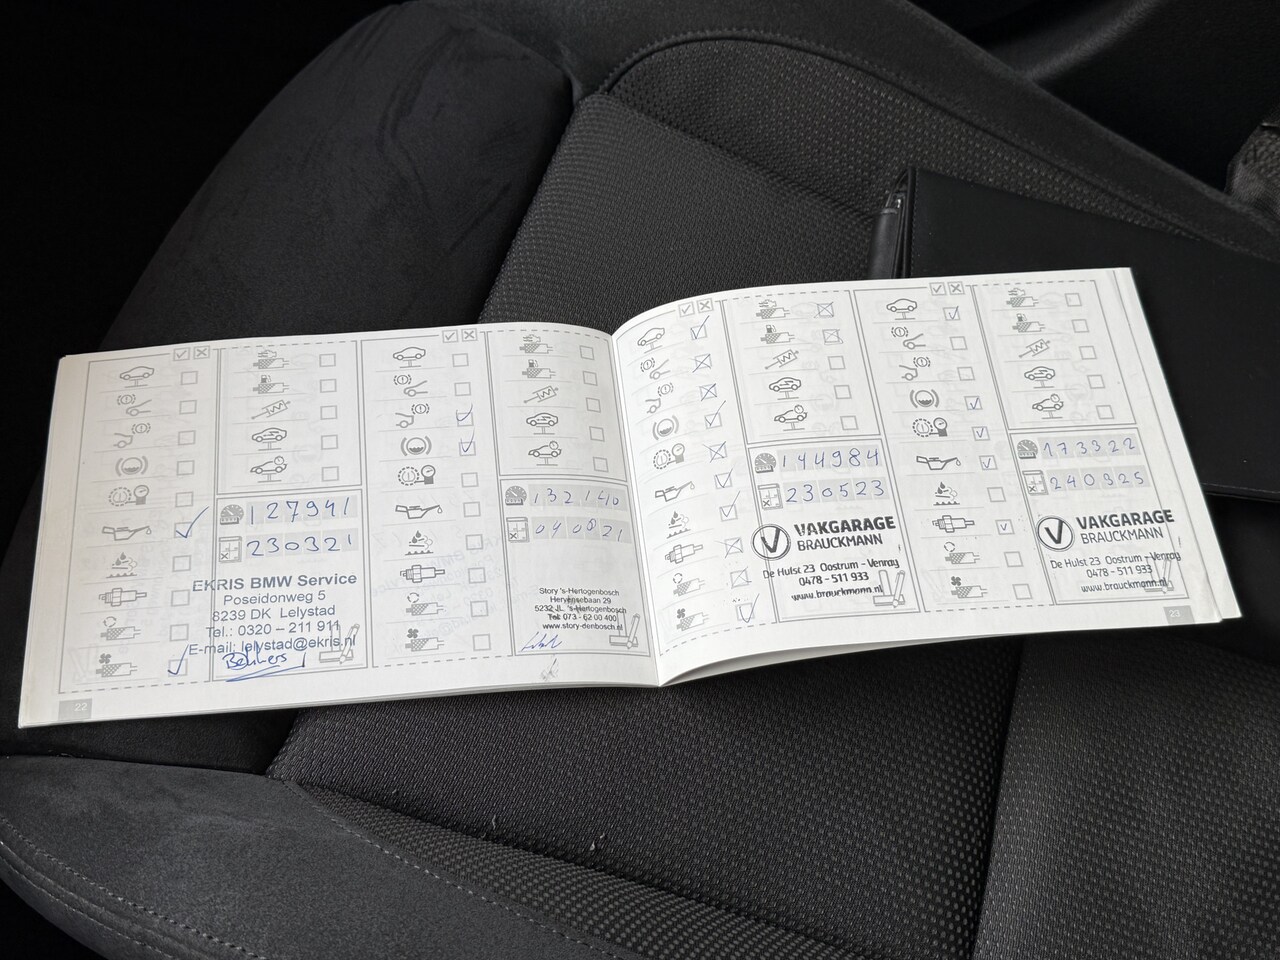 127941
230321
EKRIS BMW Service
Poseidonweg 5
8239 DK Lelystad
Tel.: 0320 - 211 911
E-mail: lelystad@ekris.nl
132140
040821
Story 's-Hertogenbosch
Hervensebaan 29
5232 JL 's-Hertogenbosch
Tel: 073 - 62 00 400
www.story-denbosch.nl
22
144984
230523
VAKGARAGE
BRAUCKMANN
De Hulst 23 Oostrum - Venray
0478 - 511 933
www.brauckmann.nl
173322
240325
VAKGARAGE
BRAUCKMANN
De Hulst 23 Oostrum - Venray
0478 - 511 933
www.brauckmann.nl
23